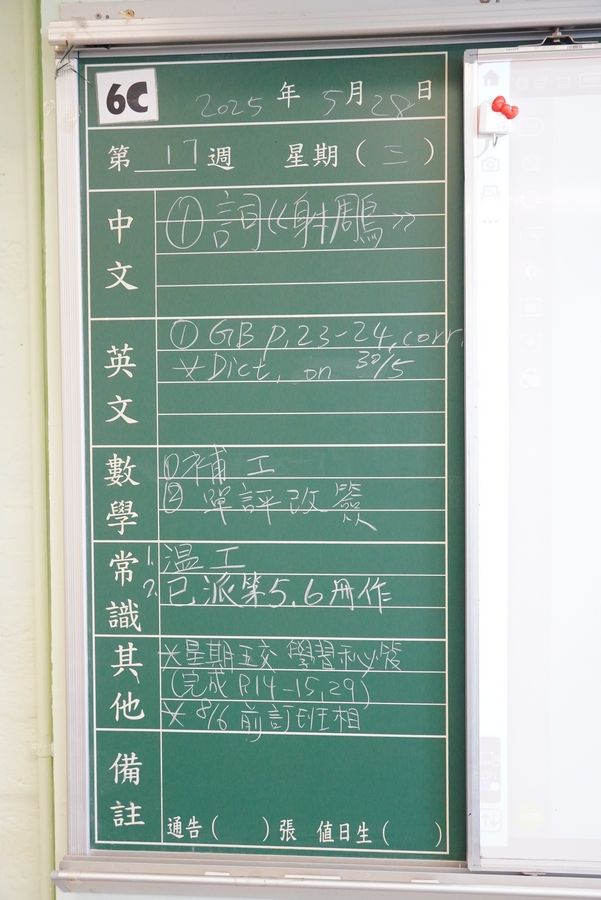 6C 2025年5月28日
第17週 星期(三)
中文
① 詞《射鵰》
英文
① GB p.23-24, corr.
* Dict. on 30/5
數學
① 補工
② 單評改簽
常識
1. 温工
2. 已派第5.6冊作
其他
*星期五交 學習秘笈
(完成P.14-15,29)
* 8/6 前訂班相
備註
通告( )張 值日生( )